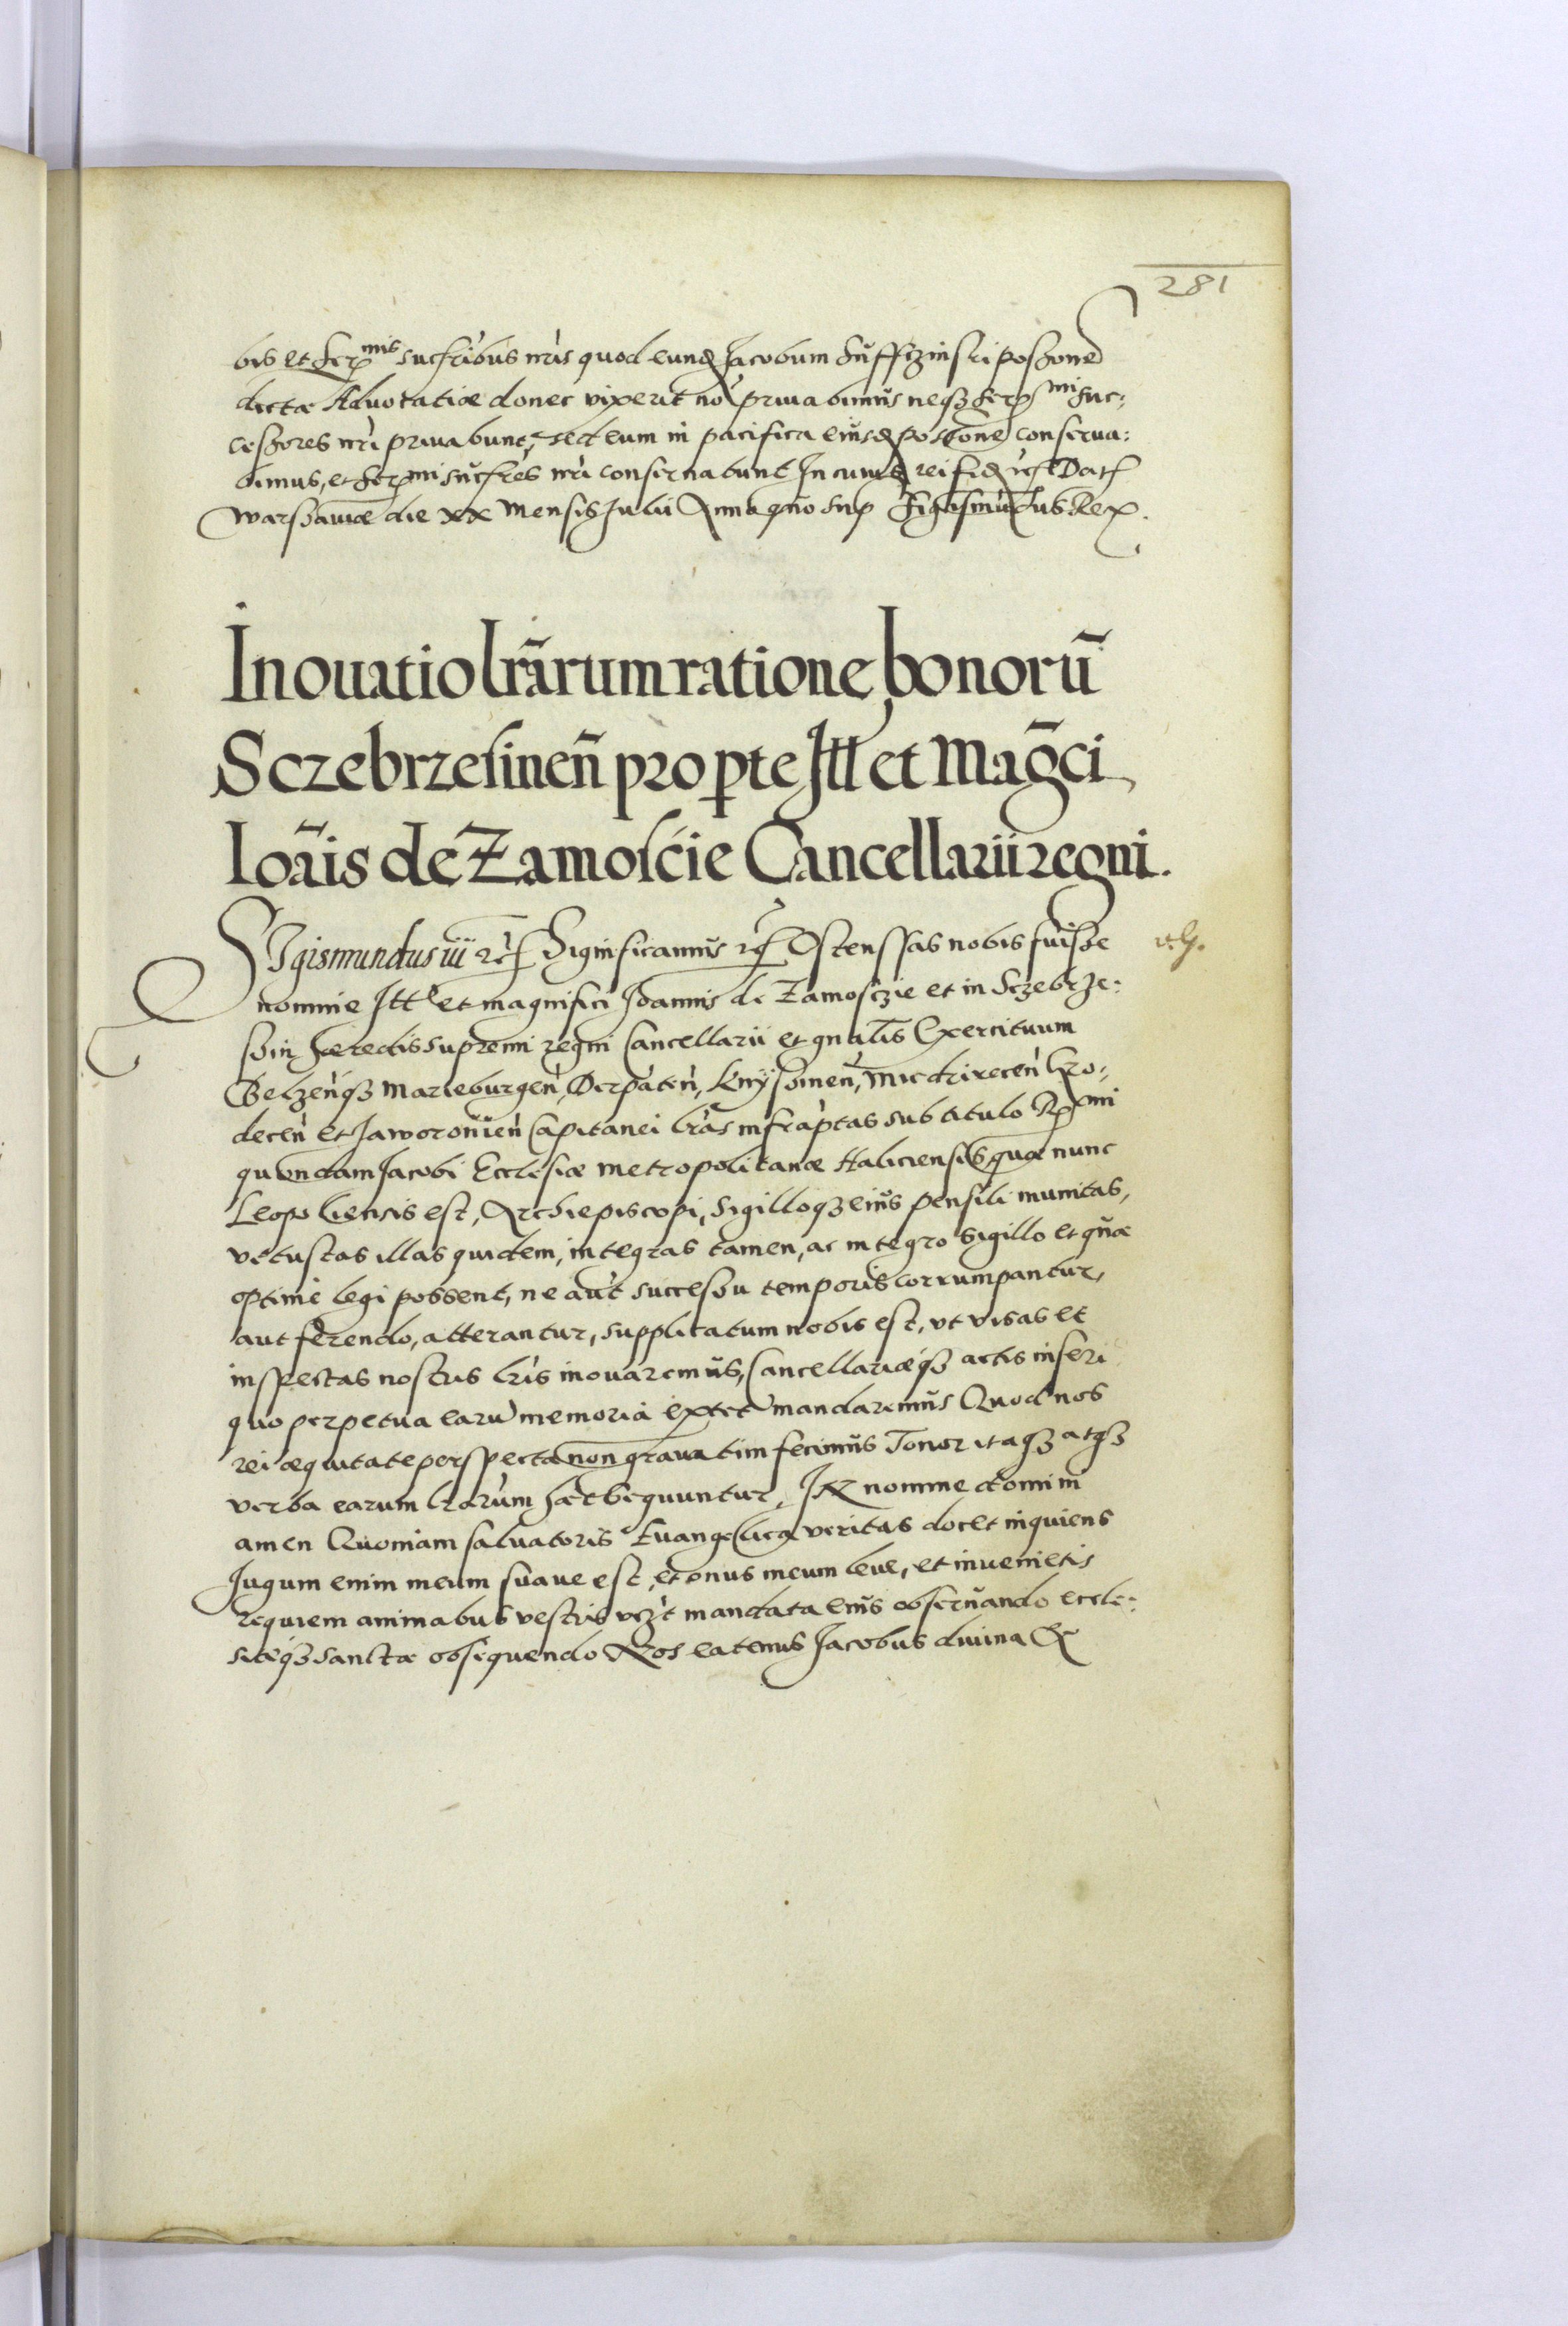 281
bis et Ser<sup>mis</sup> sucſribus nr̃is quod eund Jacobum Suſſczinski poſſone
dictæ Aduocatiæ donec vixerit nõ priuabimus neqȝ Ser<sup>mi</sup> suc:
ceſſores nr̃i priuabunt, sed eum in pacifica eiusd poſſone conserua:
bimus, et Ser<sup>mi</sup> sucſres nr̃i conseruabunt In cuius rei fid etc Dat
Warſſauiæ die XX Mensis Julii Anno quo sup Sigismũdus Rex.
Inouatio lrãrum ratione bonorũ
Sczebrzesinen̄ pro pte Ill et Mag̃ci
Ioãis de Zamoscie Cancellarii regni.
SIgismundus iii etc Significamus etc Ostensſas nobis fuiſſe
nomine Ill et magnifici Joannis de Zamosczie et in Sczebrze:
ſſin hæredis supremi regni Cancellarii et gnãlis Exercituum
Belzen̄qȝ Marieburgen̄, Derpaten̄, Knyſſinen̄, Miedzirecen̄ Gro:
decen̄ et Jaworouien̄ Capitanei lrãs infraptas sub titulo R<sup>mi</sup>
quondam Jacobi Ecclesiæ metropolitanæ Haliciensis quæ nunc
Leopoliensis est, Archiepiscopi, Sigilloqȝ eius pensili munitas,
vetustas illas quidem, integras tamen, ac integro sigillo et quæ
optime legi possent, ne aũt successu temporis corrumpantur,
aut ferendo, atterantur, supplicatum nobis est, vt visas et
inspectas nostris lr̃is inouaremus, Cancellariæqȝ actis inseri
quo perpetua earũ memoria extet mandaremus Quod nos
rei æquitate perspecta non grauatim fecimus Tenor itaqȝ atqȝ
verba earum lrarũm hæc sequuntur, IN nomine domini
amen Quoniam saluatoris Euangelica veritas docet inquiens
Jugum enim meum suaue est, et onus meum leue, et inuenietis
requiem animabus vestris vizt mandata eius obseruando eccle:
siæqȝ sanctæ obsequendo Nos eatenus Jacobus diuina &